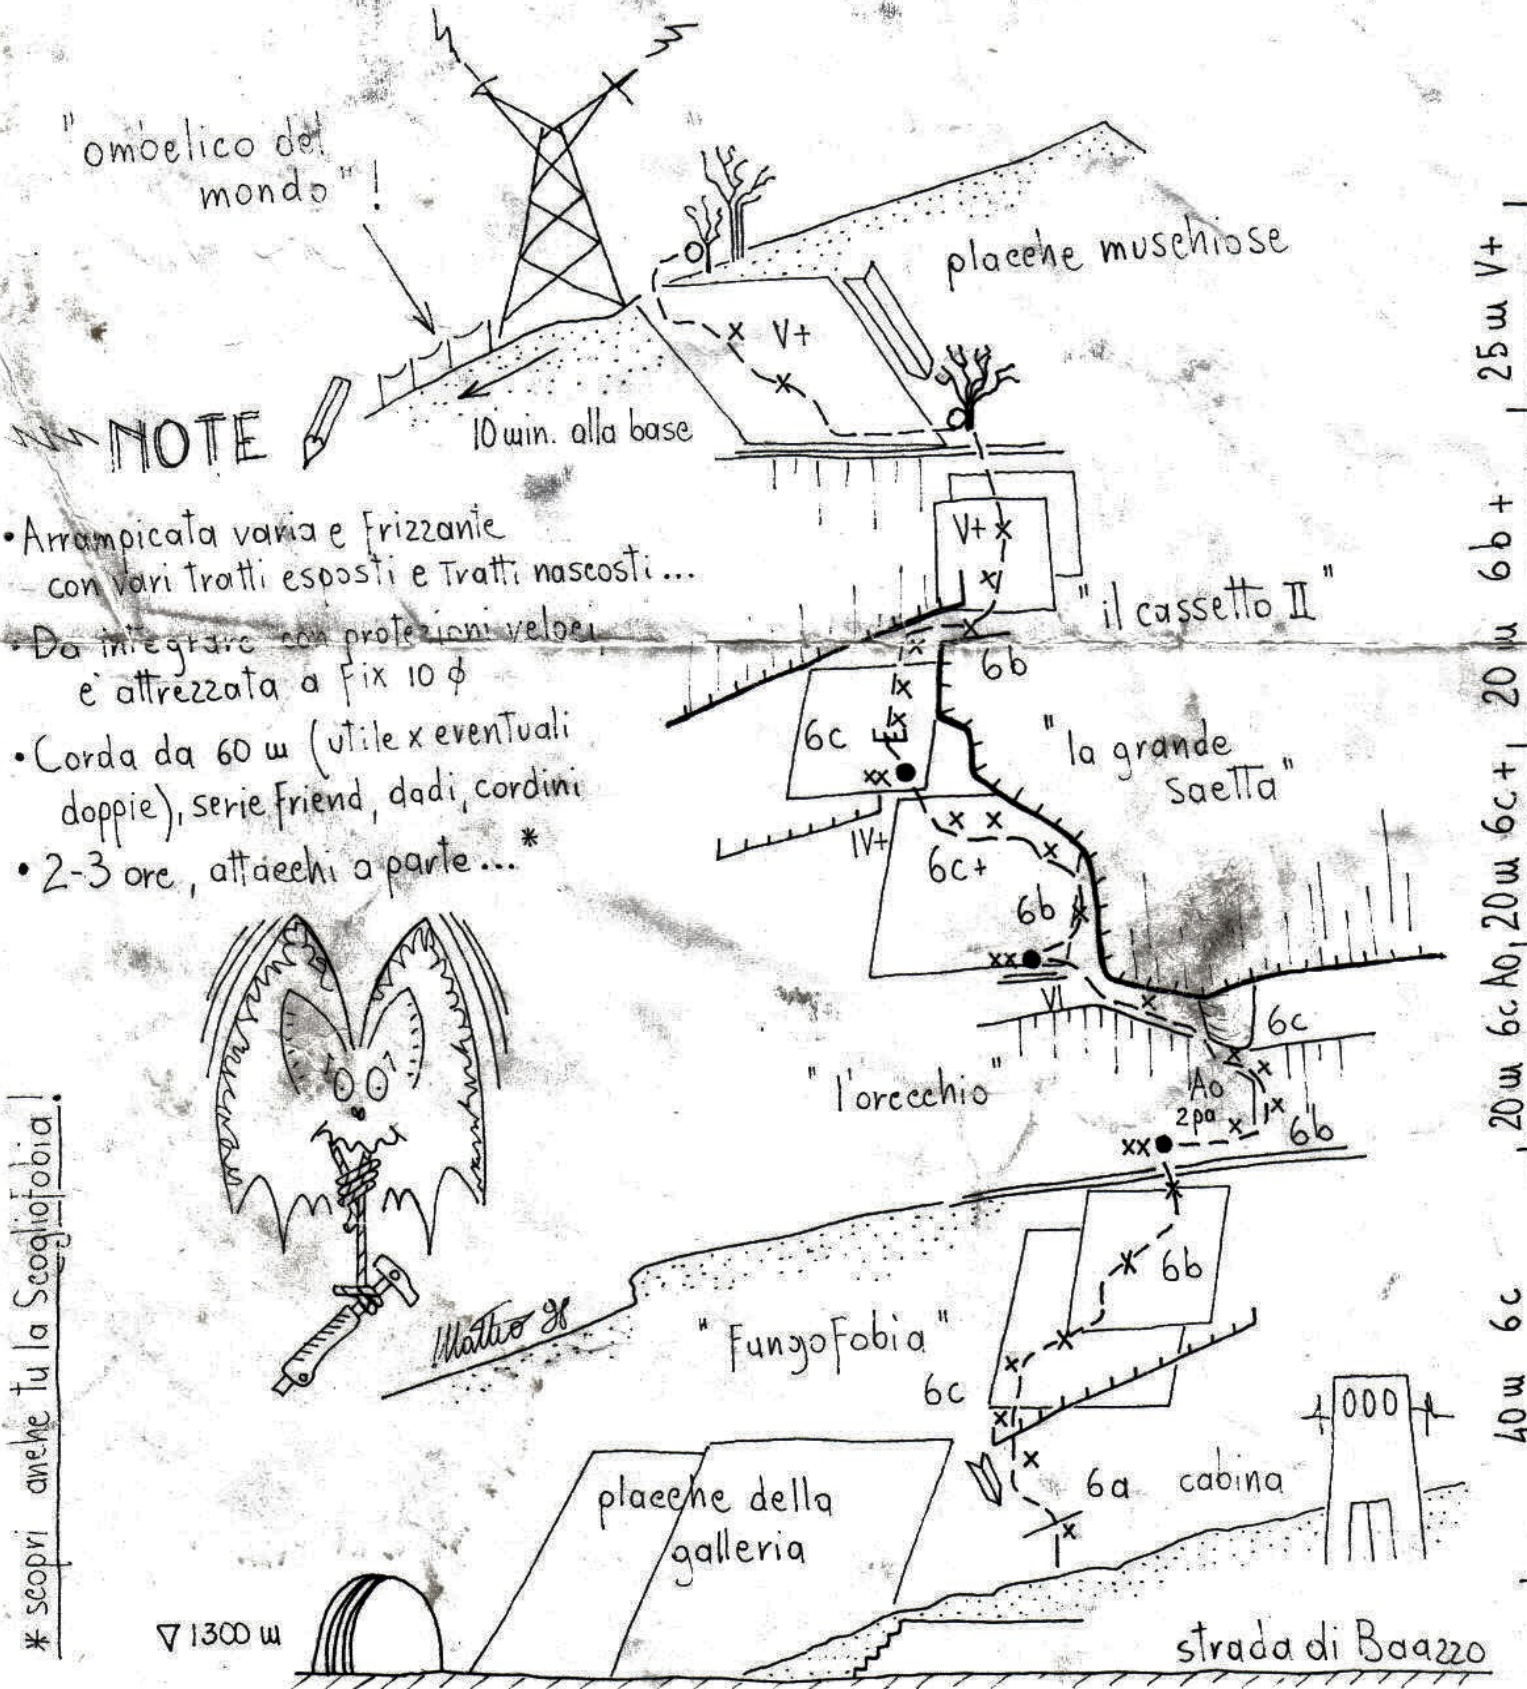 "ombelico del
mondo"!
placche muschiose
V+
10 min. alla base
NOTE
• Arrampicata varia e frizzante
con vari tratti esposti e tratti nascosti...
• Da integrare con protezioni veloci
e' attrezzata a fix 10 ϕ
• Corda da 60 m (utile x eventuali
doppie), serie friend, dadi, cordini
• 2-3 ore, attacchi a parte...*
V+
"il cassetto II"
6b
6c
xx
"la grande
saetta"
IV+
6c+
6b
xx
VI
6c
"l'orecchio"
A0
2pa
xx
6b
6b
Matteo
"Fungofobia"
6c
6a
cabina
placche della
galleria
∇ 1300 m
strada di Baazzo
* scopri anche tu la Scogliofobia!
25 m V+
20 m 6b+
20 m 6c A0, 20 m 6c+,
40 m 6c